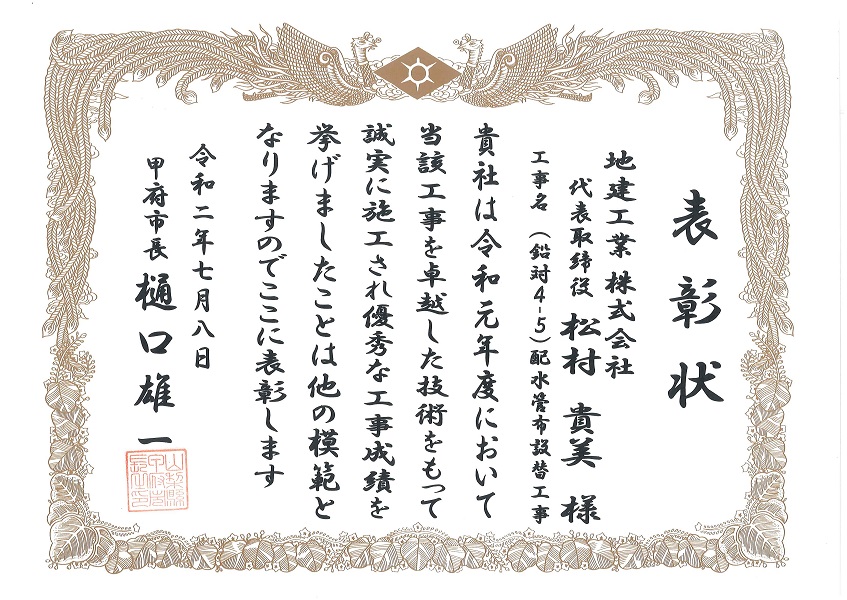 表彰状
地建工業株式会社
代表取締役 松村 貴美 様
工事名 (鉛対4-5)配水管布設替工事
貴社は令和元年度において
当該工事を卓越した技術をもって
誠実に施工され優秀な工事成績を
挙げましたことは他の模範と
なりますのでここに表彰します
令和二年七月八日
甲府市長 樋口雄一
山梨縣
甲府市
長之印